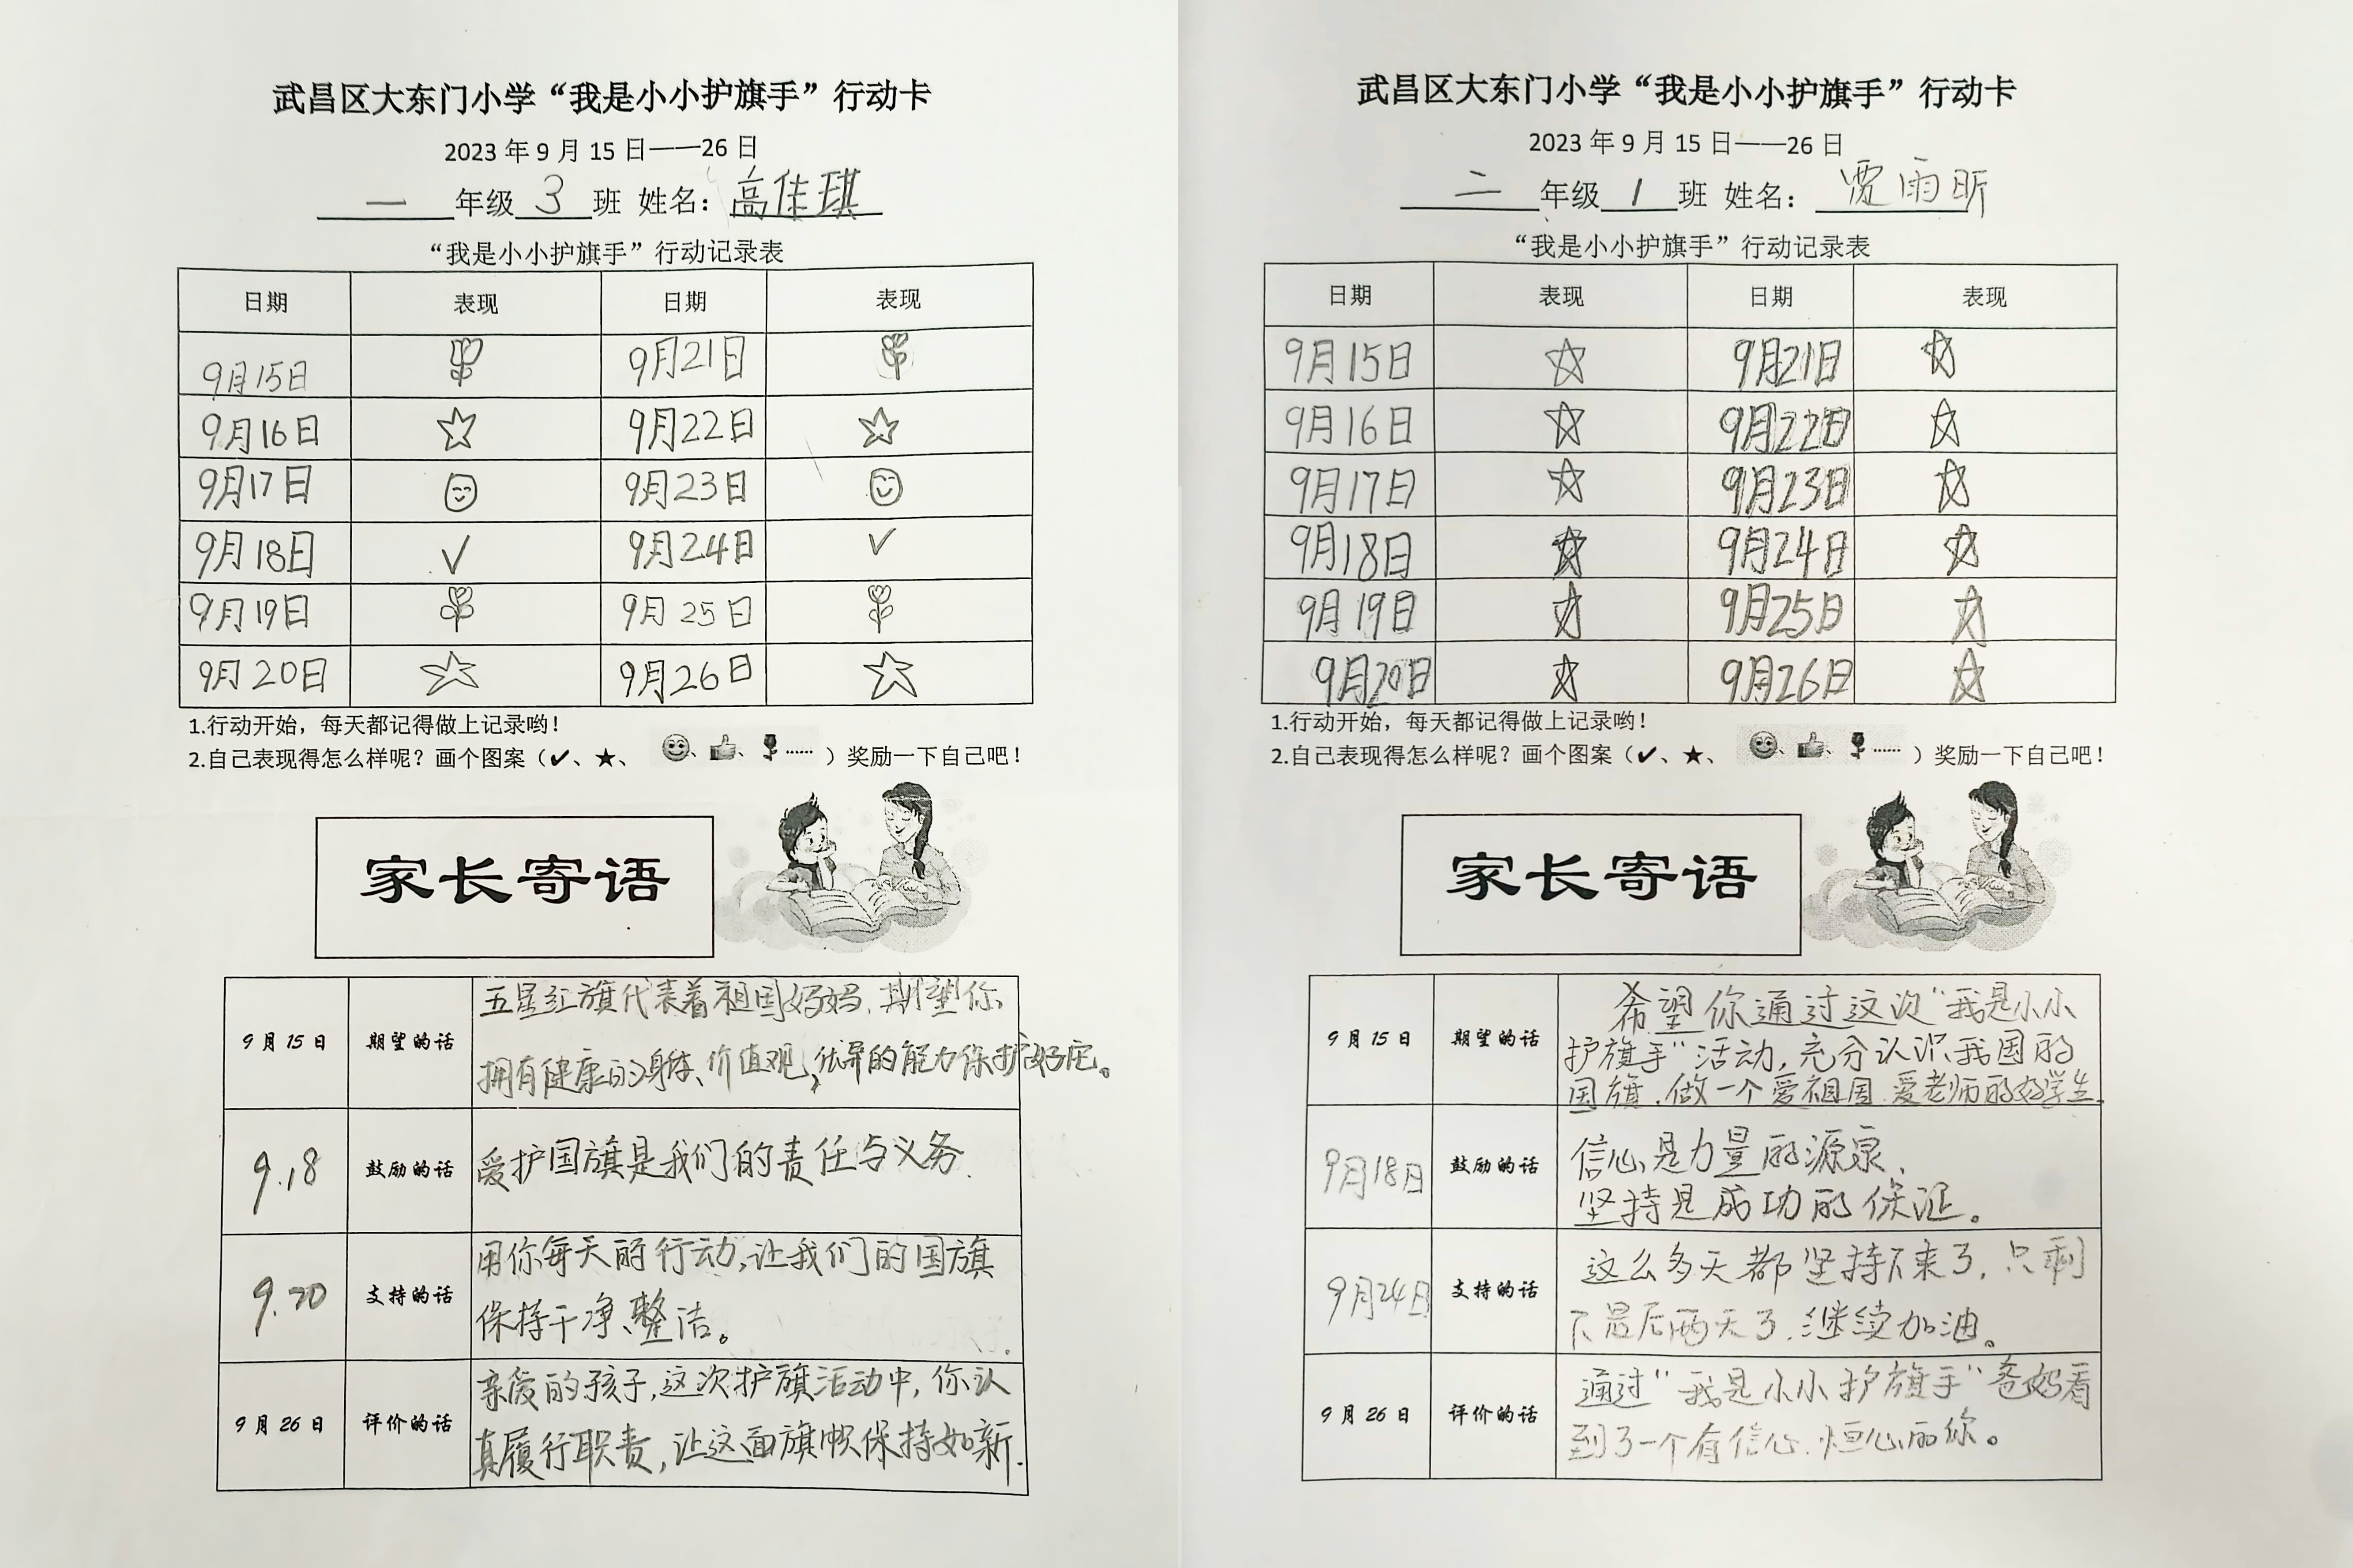 武昌区大东门小学“我是小小护旗手”行动卡
2023年9月15日——26日
一年级3班 姓名：高佳琪
“我是小小护旗手”行动记录表
日期 表现 日期 表现
9月15日 9月21日
9月16日 ☆ 9月22日 ☆
9月17日 9月23日
9月18日 ✓ 9月24日 ✓
9月19日 9月25日
9月20日 ☆ 9月26日 ☆
1.行动开始，每天都记得做上记录哟！
2.自己表现得怎么样呢？画个图案（✔、★、、、……）奖励一下自己吧！
家长寄语
9月15日 期望的话 五星红旗代表着祖国妈妈.期望你、
拥有健康的身体、价值观，优异的能力保护好它。
9.18 鼓励的话 爱护国旗是我们的责任与义务.
9.20 支持的话 用你每天的行动,让我们的国旗
保持干净、整洁。
9月26日 评价的话 亲爱的孩子,这次护旗活动中,你认
真履行职责,让这面旗帜保持如新.
武昌区大东门小学“我是小小护旗手”行动卡
2023年9月15日——26日
二年级1班 姓名：贾雨昕
“我是小小护旗手”行动记录表
日期 表现 日期 表现
9月15日 ☆ 9月21日 ☆
9月16日 ☆ 9月22日 ☆
9月17日 ☆ 9月23日 ☆
9月18日 ☆ 9月24日 ☆
9月19日 ☆ 9月25日 ☆
9月20日 ☆ 9月26日 ☆
1.行动开始，每天都记得做上记录哟！
2.自己表现得怎么样呢？画个图案（✔、★、、、……）奖励一下自己吧！
家长寄语
9月15日 期望的话 希望你通过这次“我是小小
护旗手”活动,充分认识我国的
国旗.做一个爱祖国.爱老师的好学生.
9月18日 鼓励的话 信心是力量的源泉、
坚持是成功的保证。
9月24日 支持的话 这么多天都坚持下来了,只剩
下最后两天了.继续加油。
9月26日 评价的话 通过“我是小小护旗手”爸妈看
到了一个有信心.恒心的你。